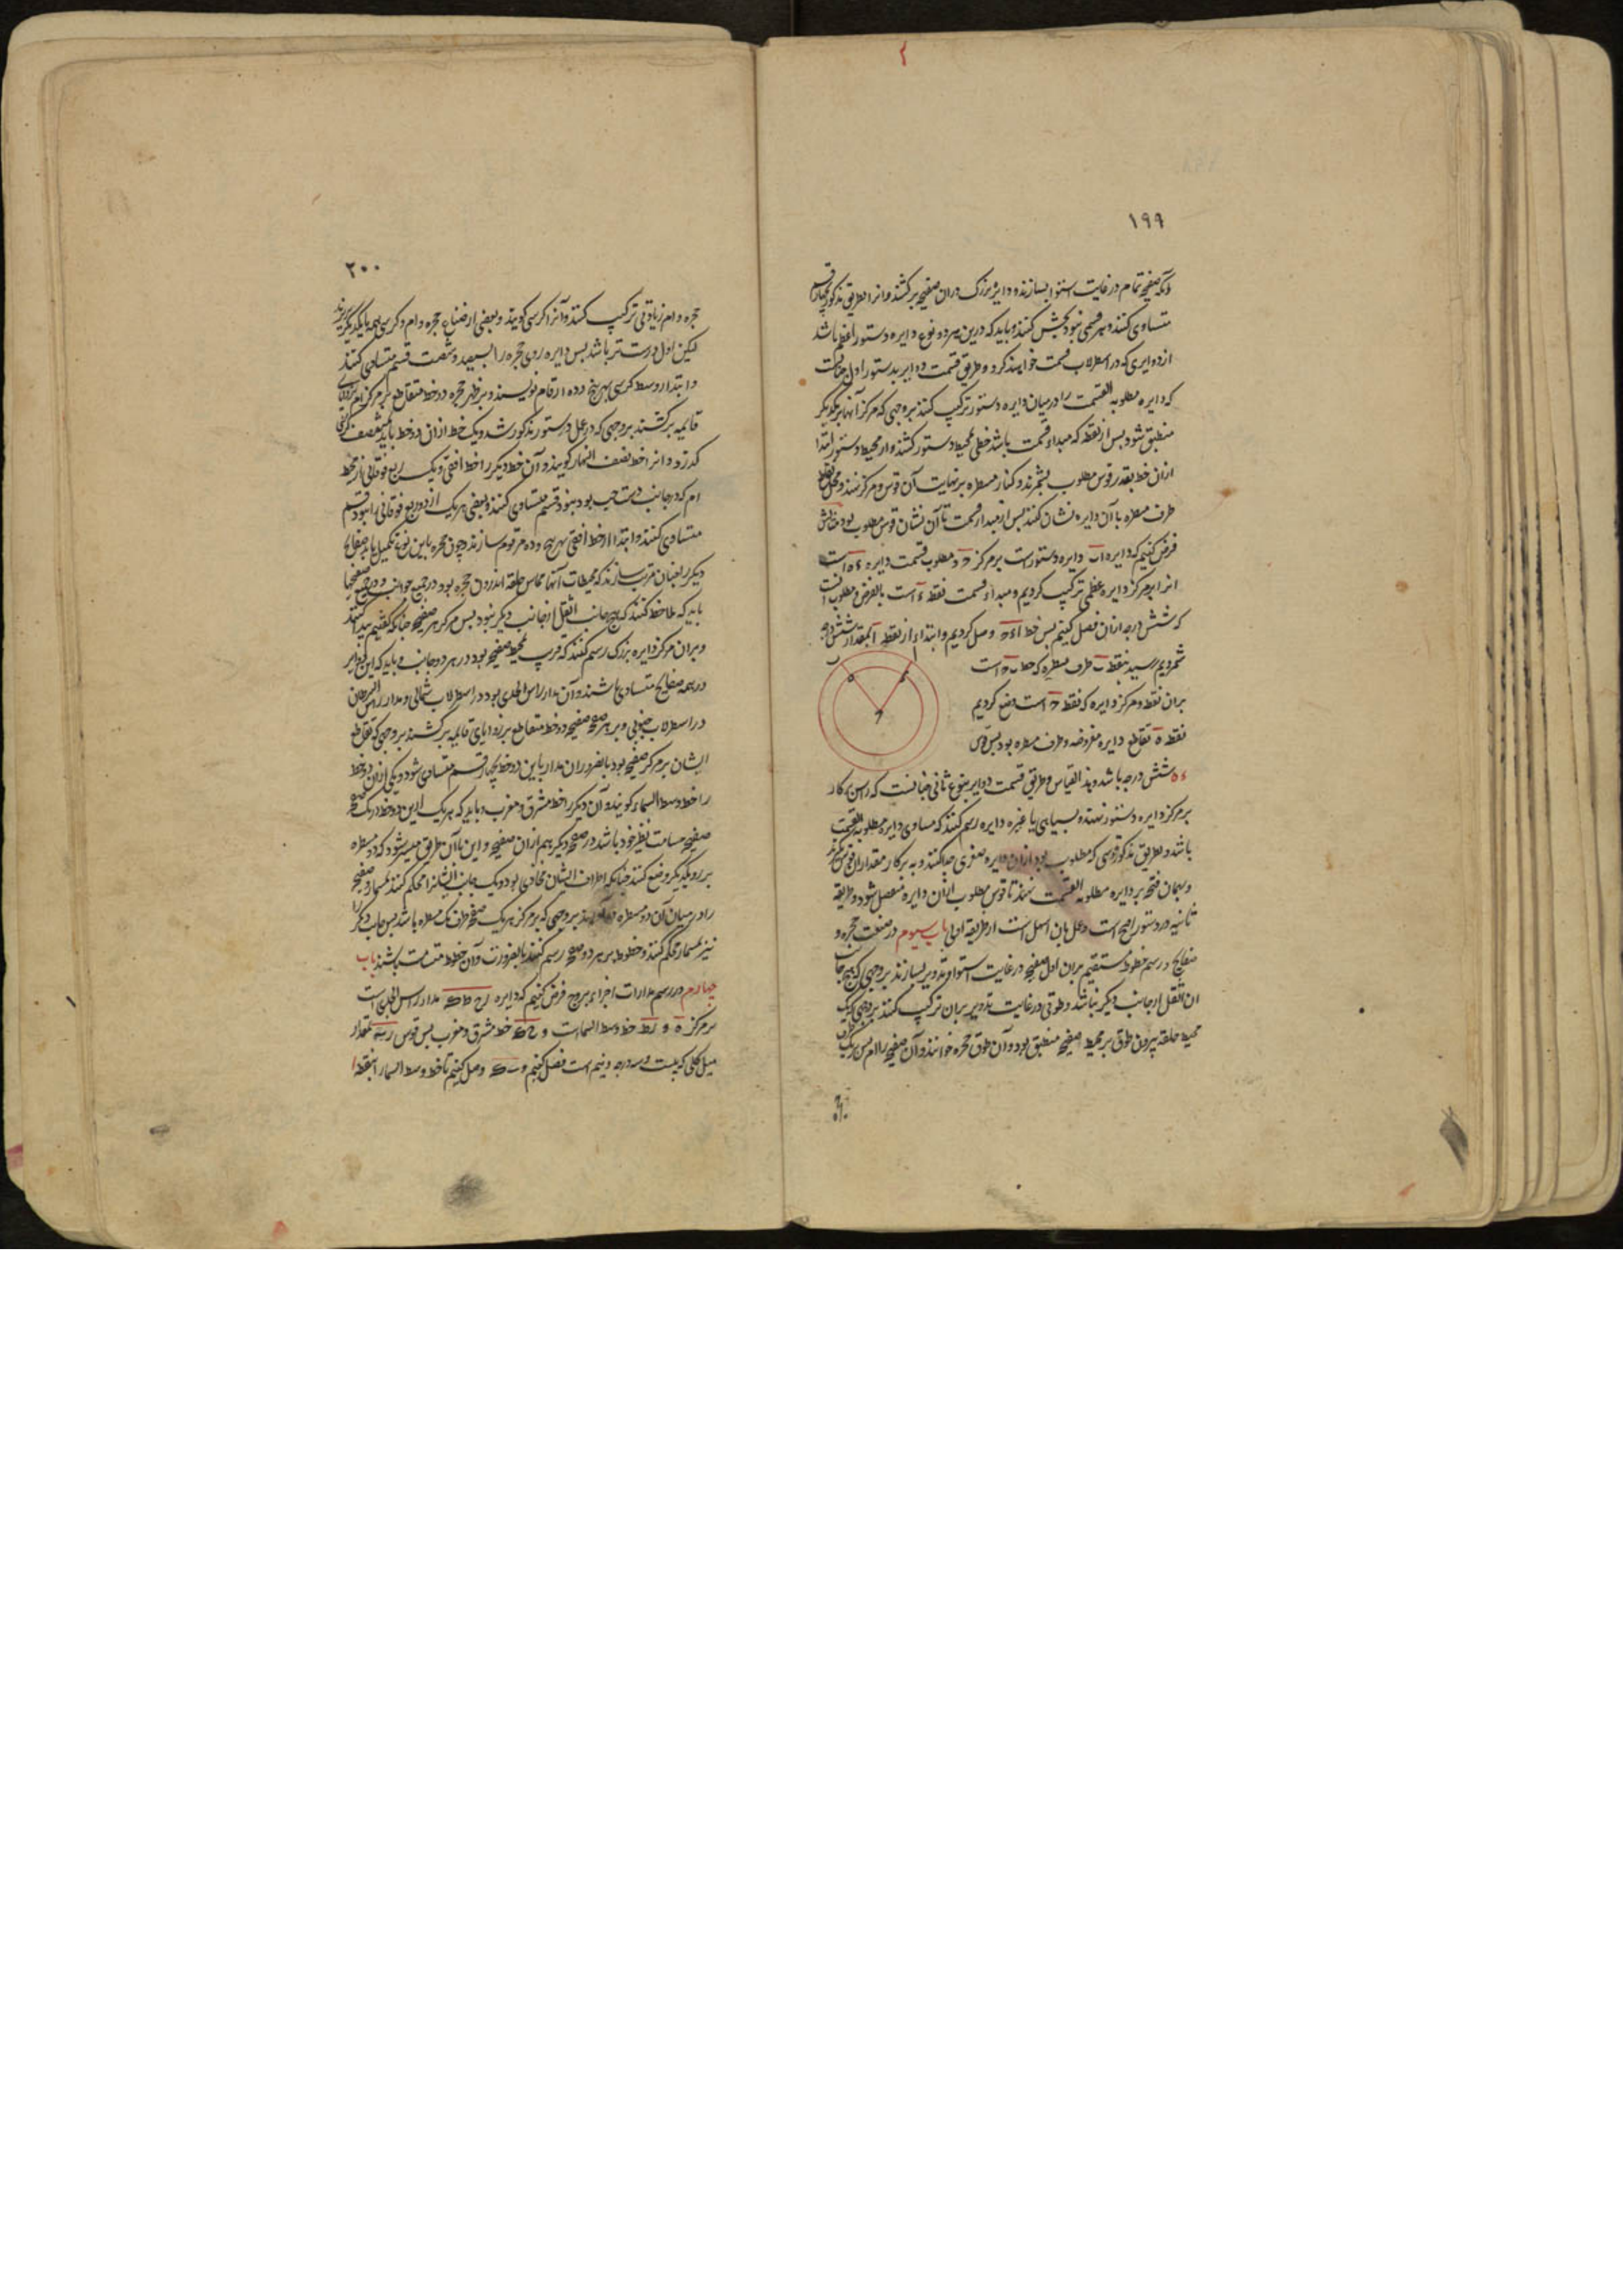 ۱۹۹
آنکه صفحه تمام در غایت استوا بسازند و دایره بزرک دران صفحه برکشند و انرا بطریق مذکور بچهار قسم
متساوی کنند و هر قسمی نبود بخش کنند و باید که درین هر دو نوع دایره دستور اعظم باشد
از دوایری که در اسطرلاب قسمت خواهند کرد و طریق قسمت دوایر بدستور اول چنانست
که دایره مطلوبه القسمت را در میان دایره دستور ترکیب کنند بر وجهی که مرکز آنها بر یکدیکر
منطبق شود پس از نقطه که مبدا و قسمت باشد خطی بمحیط دستور کشند و از محیط دستور ابتدا
ازان خط بقدر قوس مطلوب بشمرند و کنار مسطره بر نهایت آن قوس و مرکز نهند و محل تقاطع
طرف مسطره با آن دایره نشان کنند پس از مبدا قسمت تا آن نشان قوس مطلوب بود مثالش
فرض کنیم که دایره اب دایره دستور است بر مرکز ح و مطلوب قسمت دایره ء ه است
انرا بر مرکز دایره عظمی ترکیب کردیم و مبداء قسمت نقطه ء است بالفرض و مطلوب آنست
که شش درجه ازان فصل کنیم پس خط اءح وصل کردیم و ابتداء از نقطه ا بمقدار شش درجه
شمردیم رسید بنقطه ب طرف مسطره که خط ب ح است
بران نقطه و مرکز دایره که نقطه ح است وضع کردیم
نقطه ه تقاطع دایره مفروضه و طرف مسطره بود پس قوس
ء ه شش درجه باشد و بذا القیاس و طریق قسمت دوایر بنوع ثانی چنانست که راس پرکار
بر مرکز دایره دستور نهند و بسیاهی یا غیره دایره رسم کنند که مساوی دایره مطلوبه القسمت
باشد و بطریق مذکور قوسی که مطلوب بود ازان دایره صغری جدا کنند و به پرکار مقدار ان قوس برکیرند
و بهمان فتحه بر دایره مطلوبه القسمت نهند تا قوس مطلوب ازان دایره منفصل شود و طریقه
ثانیه در دستور اصح است و عمل بان اسهل است از طریقه اولی باب سیوم در صنعت حجره و
صفایح و رسم خطوط مستقیم بران اول صفحه در غایت استوا و تدویر بسازند بر وجهی که هیچ جانب
ان اثقل از جانب دیکر نباشد و طوقی در غایت تدویر بران ترکیب کنند بر وجهی که یک
محیط حلقه بیرون طوق بر محیط صفیحه منطبق بود و آن طوق حجره خوانند و آن صفیحه را ام پس بر یک
۲۰۰
حجره و ام زیادتی ترکیب کنند و آنرا کرسی کویند و بعضی از صناع حجره و ام و کرسی بهم بایکدیکر بریزند
لیکن اول درست تر باشد پس دایره روی حجره را بسیصد و شصت قسم متساوی کنند
و ابتدا از وسط کرسی بهر پنج و ده ارقام نویسند و بر ظهر حجره دو خط متقاطع بر مرکز ام بزوایای
قایمه برکشند بر وجهی که در عمل دستور مذکور شد و یک خط ازان دو خط باید که بمنتصف کرسی
کذرد و انرا خط نصف النهار کویند و آن خط دیکر را خط افقی و یک ربع فوقانی از محیط
ام که در جانب دست چپ بود بنود قسم متساوی کنند و بعضی هر یک از دو ربع فوقانی را بنود قسم
متساوی کنند و ابتدا از خط افقی بهر پنج و ده مرقوم سازند و چون حجره باین نوع تکمیل یابد صفایح
دیکر را بعنان مرتب سازند که محیطات آنها مماس حلقه اندرون حجره بود در جمیع جوانب و در جمیع صفیحها
باید که ملاحظه کنند که هیچ جانب اثقل از جانب دیکر نبود پس مرکز هر صفیحه چنانکه کفتیم پیدا کنند
و بران مرکز دایره بزرک رسم کنند که قریب بمحیط صفیحه بود در هر دو جانب و باید که این دوایر
در همه صفایح متساوی باشند و آن مدار راس الجدی بود در اسطرلاب شمالی و مدار راس السرطان
در اسطرلاب جنوبی و بر هر صفحه صفیحه دو خط متقاطع بر زوایای قایمه برکشند بر وجهی که تقاطع
ایشان بر مرکز صفیحه بود بالضرور ان مدار باین دو خط بچهار قسم متساوی شود و یکی ازان دو خط
را خط وسط السماء کویند و آن دیکر را خط مشرق و مغرب و باید که هر یک ازین دو خط در یک صفحه
صفیحه مسامت نظیر خود باشد در صفحه دیکر هم ازان صفیحه و این باآن طریق میسر شود که دو مسطره
بر روی یکدیکر وضع کنند چنانکه اطراف ایشان محاذی بود و یک جانب ایشانرا محکم کنند بمسمار و صفیحه
را در میان آن دو مسطره درآورند بر وجهی که بر مرکز هر یک صفحه طرف یک مسطره باشد پس جانب دیکر را
نیز بمسمار محکم کنند و خطوط بر هر دو صفحه رسم کنند بالضرورت و آن خطوط متسامت باشند باب
چهارم در رسم مدارات اجزاء بروج فرض کنیم که دایره رح ط ک مدار راس الجدی است
بر مرکز ه و رط خط وسط السماست و ح ک خط مشرق و مغرب پس قوس ب بمقدار
میل کلی که بیست و سه درجه و نیم است فصل کنیم و ب ک وصل کنیم تا خط وسط السما را بنقطه ا